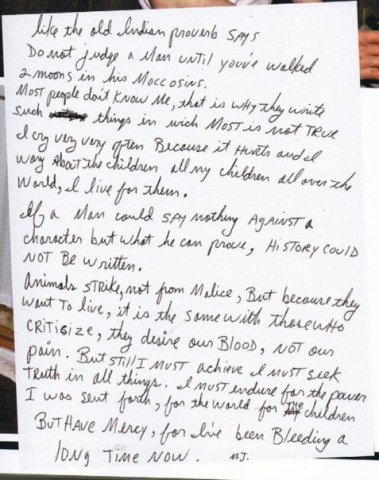 like the old Indian proverb SAYS
Do not judge a Man until you've walked
2 moons in his Moccosins.
MOST people don't KNOW Me, that is WHY they write
such things in wich MOST is not TRUE
I cry very very often Because it HURTS and I
wory About the children all my children all over the
World, I live for them.
If a Man could SAY nothing AGAINST a
character but what he can prove, HISTORY COULD
NOT BE written.
Animals STRIKE, not from Malice, But because they
want To live, it is the same with those WHO
CRITISIZE, they desire our BLOOD, NOT our
pain. But still I MUST achieve I must seek
Truth in all things. I must endure for the power
I was sent forth, for the world for the children
BUT HAVE Mercy, for I've been Bleeding a
long Time NOW. MJ.